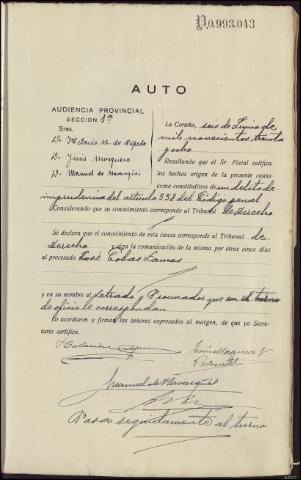 P.0.993.043
AUTO
AUDIENCIA PROVINCIAL
SECCION 1ª
Sres.
D.
D. Jesús
D. Manuel de
La Coruña, seis de Junio de
mil novecientos treinta y
ocho
Resultando que el Sr. Fiscal califica
los hechos origen de la presente causa
como constitutivos de un delito de
imprudencia del artículo 558 del Código penal
Considerando que su conocimiento corresponde al Tribunal de Derecho
Se declara que el conocimiento de esta causa corresponde al Tribunal de
Derecho y siga la comunicación de la misma por otros cinco días
al procesado José Cobas Lamas
y en su nombre al Letrado y Procurador que en el turno
de oficio le correspondan
Lo acordaron y firman los señores expresados al margen, de que yo Secre-
tario certifico.
Manuel de
Pasa seguidamente al turno